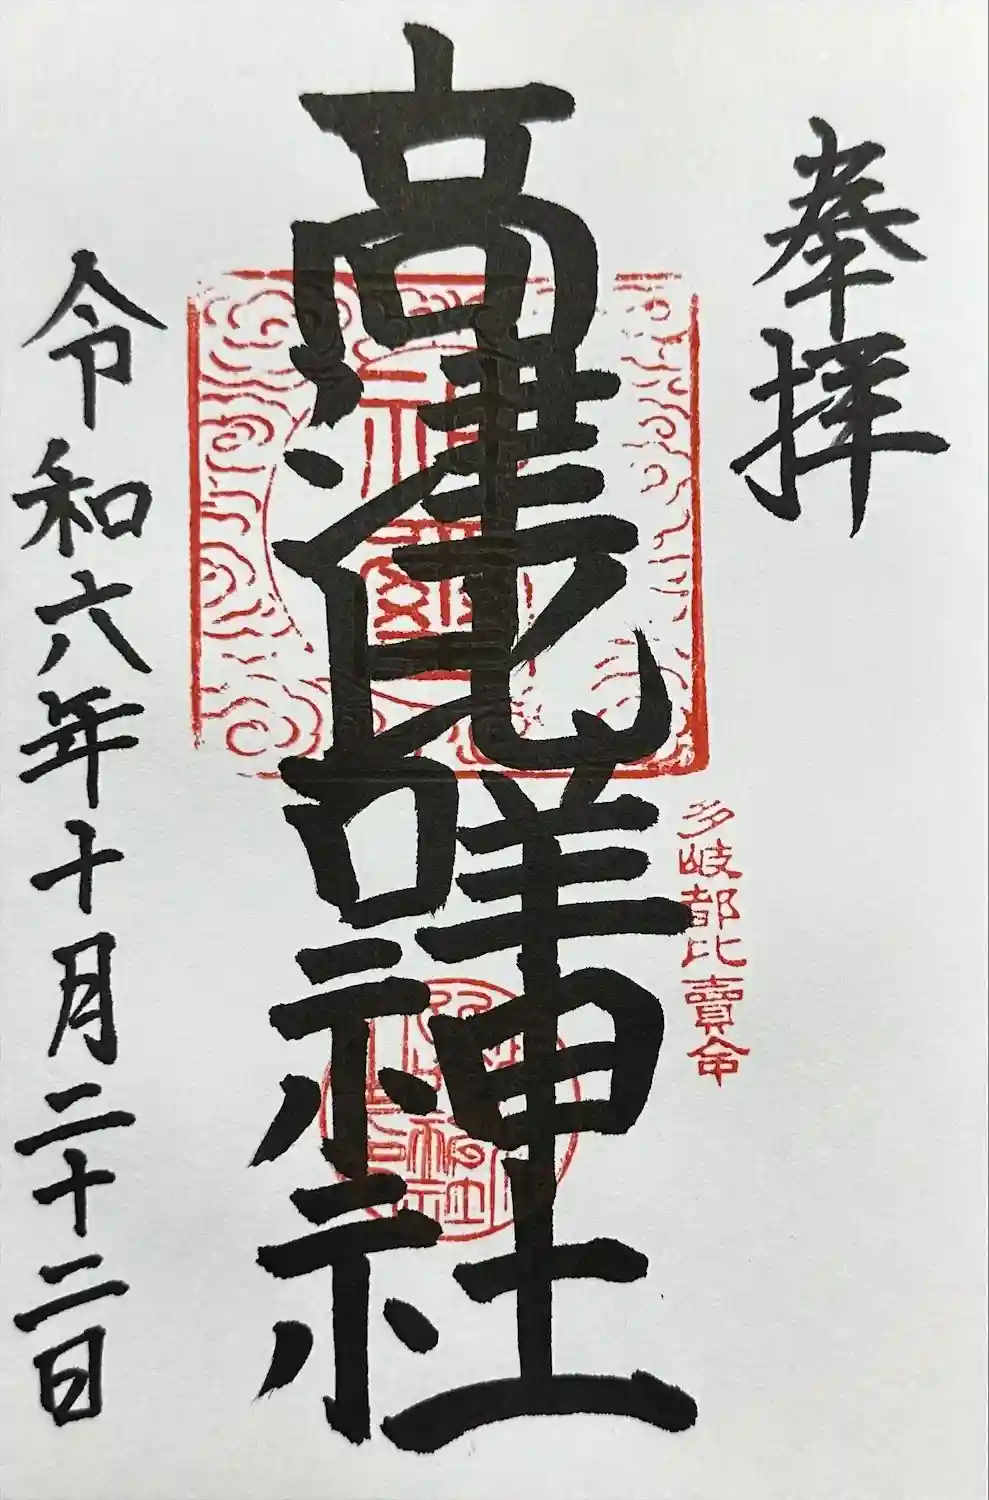 奉拝
高津比咩神社
多岐都比賣命
令和六年十月二十二日